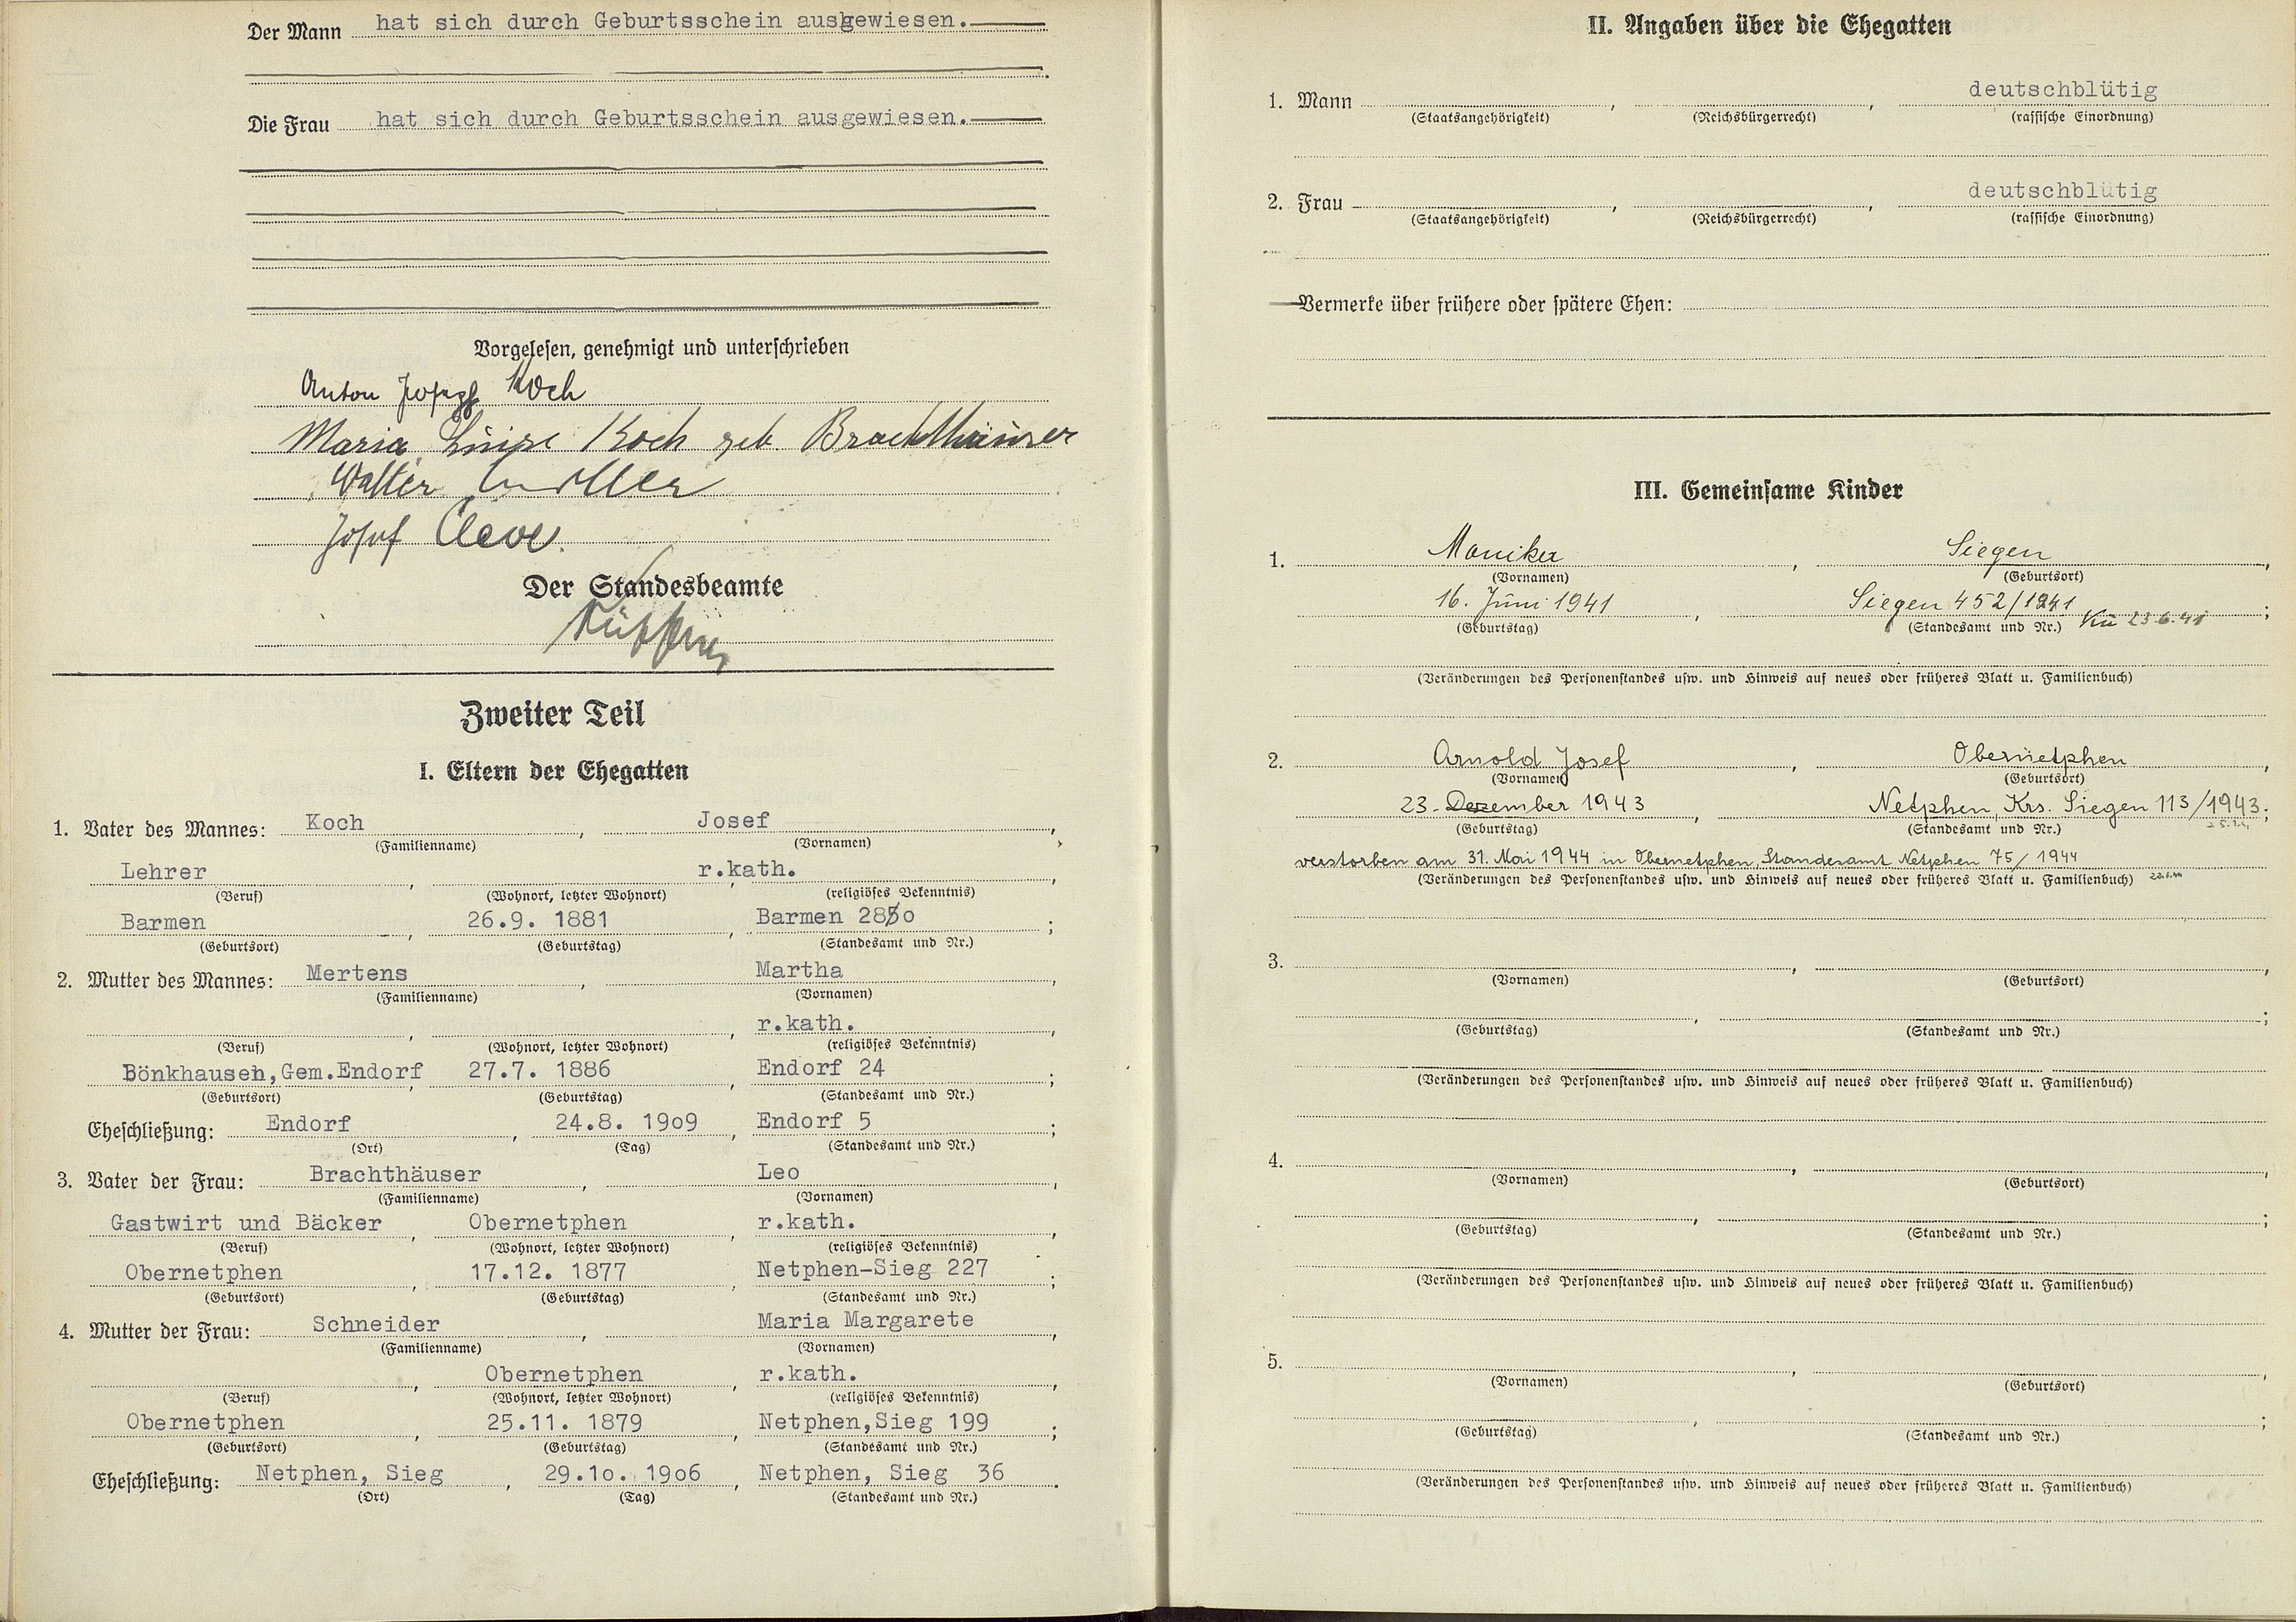 Der Mann hat sich durch Geburtsschein ausgewiesen.
Die Frau hat sich durch Geburtsschein ausgewiesen.
Vorgelesen, genehmigt und unterschrieben
Anton Josef Koch
Maria Luise Koch geb. Brachthäuser
Walter
Josef Cleve
Der Standesbeamte
Zweiter Teil
I. Eltern der Ehegatten
1. Vater des Mannes: Koch, Josef,
(Familienname) (Vornamen)
Lehrer, r.kath.,
(Beruf) (Wohnort, letzter Wohnort) (religiöses Bekenntnis)
Barmen, 26.9. 1881, Barmen 2850;
(Geburtsort) (Geburtstag) (Standesamt und Nr.)
2. Mutter des Mannes: Mertens, Martha,
(Familienname) (Vornamen)
, , r.kath.,
(Beruf) (Wohnort, letzter Wohnort) (religiöses Bekenntnis)
Bönkhausen, Gem.Endorf, 27.7. 1886, Endorf 24;
(Geburtsort) (Geburtstag) (Standesamt und Nr.)
Eheschließung: Endorf, 24.8. 1909, Endorf 5;
(Ort) (Tag) (Standesamt und Nr.)
3. Vater der Frau: Brachthäuser, Leo,
(Familienname) (Vornamen)
Gastwirt und Bäcker, Obernetphen, r.kath.,
(Beruf) (Wohnort, letzter Wohnort) (religiöses Bekenntnis)
Obernetphen, 17.12. 1877, Netphen-Sieg 227;
(Geburtsort) (Geburtstag) (Standesamt und Nr.)
4. Mutter der Frau: Schneider, Maria Margarete,
(Familienname) (Vornamen)
, Obernetphen, r.kath.,
(Beruf) (Wohnort, letzter Wohnort) (religiöses Bekenntnis)
Obernetphen, 25.11. 1879, Netphen,Sieg 199;
(Geburtsort) (Geburtstag) (Standesamt und Nr.)
Eheschließung: Netphen, Sieg, 29.10. 1906, Netphen, Sieg 36.
(Ort) (Tag) (Standesamt und Nr.)
II. Angaben über die Ehegatten
1. Mann , , deutschblütig
(Staatsangehörigkeit) (Reichsbürgerrecht) (rassische Einordnung)
2. Frau , , deutschblütig
(Staatsangehörigkeit) (Reichsbürgerrecht) (rassische Einordnung)
Vermerke über frühere oder spätere Ehen:
III. Gemeinsame Kinder
1. Monika, Siegen,
(Vornamen) (Geburtsort)
16. Juni 1941, Siegen 452/1941 Kü 23.6.41;
(Geburtstag) (Standesamt und Nr.)
(Veränderungen des Personenstandes usw. und Hinweis auf neues oder früheres Blatt u. Familienbuch)
2. Arnold Josef, Obernetphen,
(Vornamen) (Geburtsort)
23. Dezember 1943, Netphen, Krs. Siegen 113/1943;
(Geburtstag) (Standesamt und Nr.)
verstorben am 31. Mai 1944 in Obernetphen, Standesamt Netphen 75/1944
(Veränderungen des Personenstandes usw. und Hinweis auf neues oder früheres Blatt u. Familienbuch)
3. , ,
(Vornamen) (Geburtsort)
, ;
(Geburtstag) (Standesamt und Nr.)
(Veränderungen des Personenstandes usw. und Hinweis auf neues oder früheres Blatt u. Familienbuch)
4. , ,
(Vornamen) (Geburtsort)
, ;
(Geburtstag) (Standesamt und Nr.)
(Veränderungen des Personenstandes usw. und Hinweis auf neues oder früheres Blatt u. Familienbuch)
5. , ,
(Vornamen) (Geburtsort)
, ;
(Geburtstag) (Standesamt und Nr.)
(Veränderungen des Personenstandes usw. und Hinweis auf neues oder früheres Blatt u. Familienbuch)